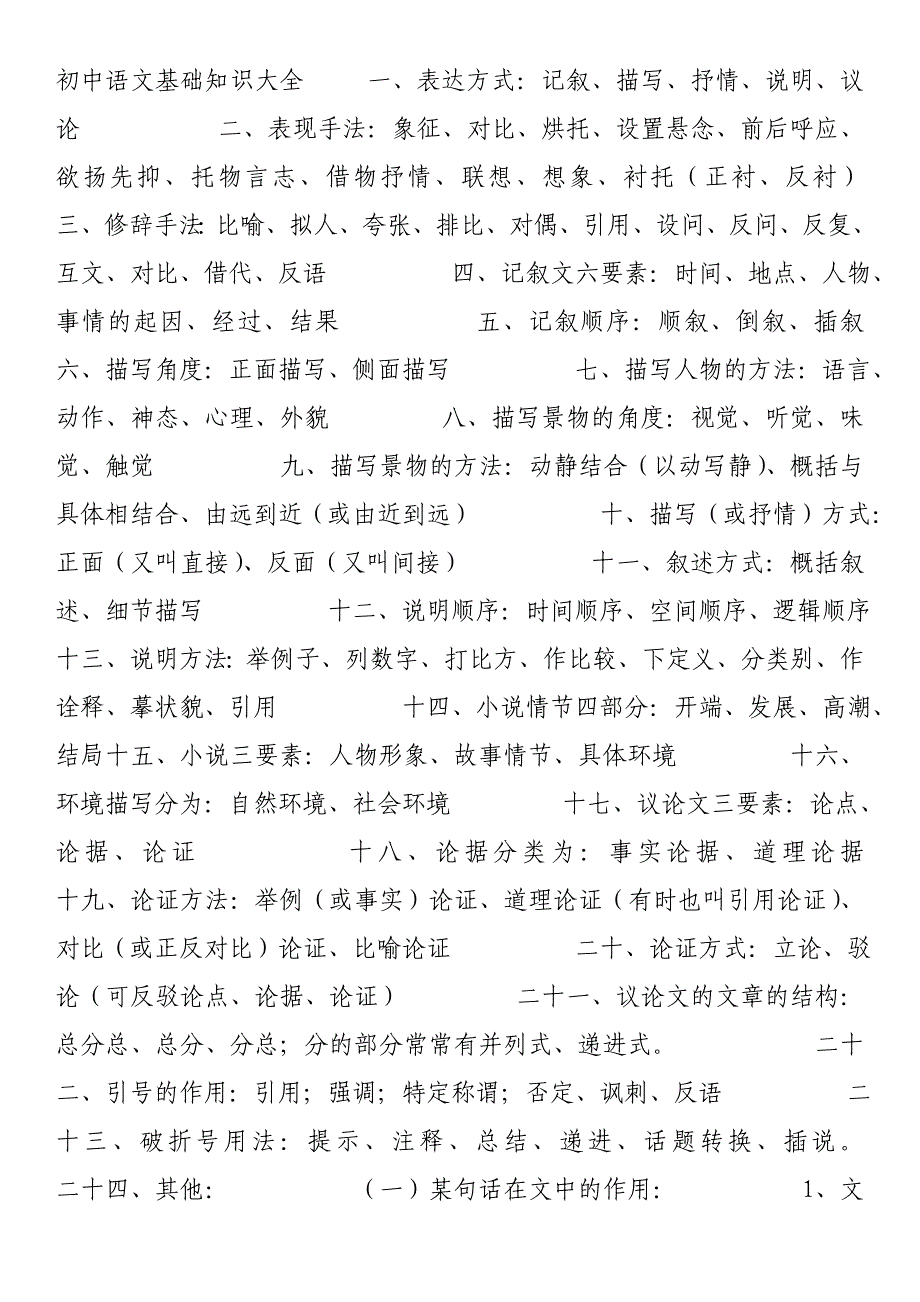 初中语文基础知识大全 一、表达方式：记叙、描写、抒情、说明、议
论 二、表现手法：象征、对比、烘托、设置悬念、前后呼应、
欲扬先抑、托物言志、借物抒情、联想、想象、衬托（正衬、反衬）
三、修辞手法：比喻、拟人、夸张、排比、对偶、引用、设问、反问、反复、
互文、对比、借代、反语 四、记叙文六要素：时间、地点、人物、
事情的起因、经过、结果 五、记叙顺序：顺叙、倒叙、插叙
六、描写角度：正面描写、侧面描写 七、描写人物的方法：语言、
动作、神态、心理、外貌 八、描写景物的角度：视觉、听觉、味
觉、触觉 九、描写景物的方法：动静结合（以动写静）、概括与
具体相结合、由远到近（或由近到远） 十、描写（或抒情）方式：
正面（又叫直接）、反面（又叫间接） 十一、叙述方式：概括叙
述、细节描写 十二、说明顺序：时间顺序、空间顺序、逻辑顺序
十三、说明方法：举例子、列数字、打比方、作比较、下定义、分类别、作
诠释、摹状貌、引用 十四、小说情节四部分：开端、发展、高潮、
结局十五、小说三要素：人物形象、故事情节、具体环境 十六、
环境描写分为：自然环境、社会环境 十七、议论文三要素：论点、
论据、论证 十八、论据分类为：事实论据、道理论据
十九、论证方法：举例（或事实）论证、道理论证（有时也叫引用论证）、
对比（或正反对比）论证、比喻论证 二十、论证方式：立论、驳
论（可反驳论点、论据、论证） 二十一、议论文的文章的结构：
总分总、总分、分总；分的部分常常有并列式、递进式。 二十
二、引号的作用：引用；强调；特定称谓；否定、讽刺、反语 二
十三、破折号用法：提示、注释、总结、递进、话题转换、插说。
二十四、其他： （一）某句话在文中的作用： 1、文